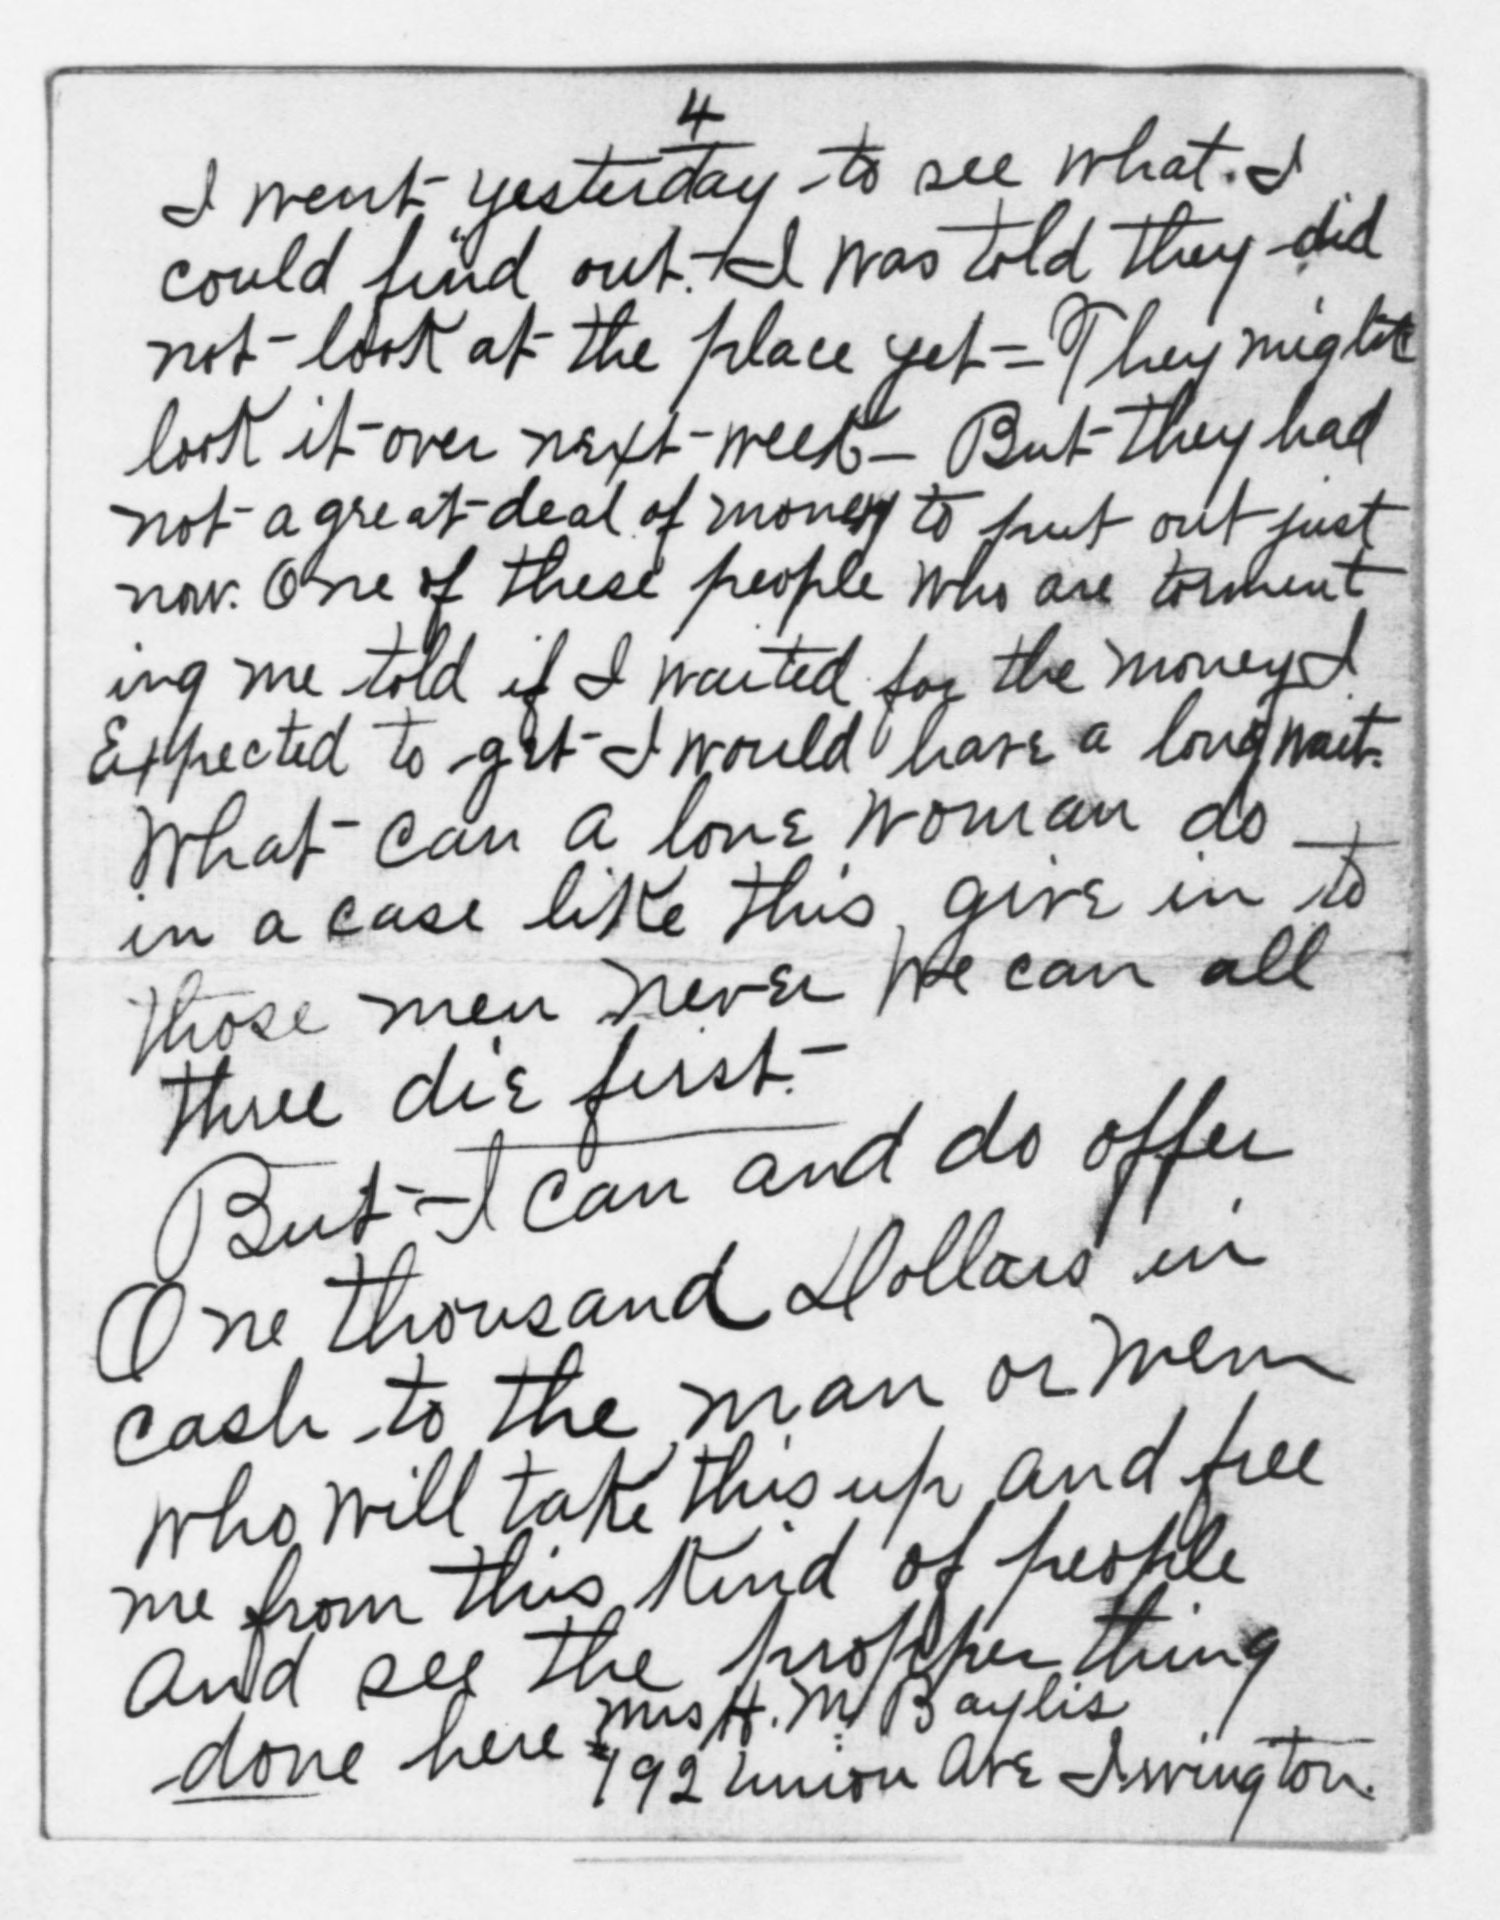 4
I went yesterday to see what I
could find out. I was told they did
not look at the place yet = They might
look it over next week - But they had
not a great deal of money to put out just
now. One of these people who are torment
ing me told if I waited for the money I
Expected to get I would have a long wait.
What can a lone woman do
in a case like this give in to
those men never We can all
three die first. -
But I can and do offer
One thousand Dollars in
cash to the man or men
who will take this up and free
me from this kind of people
and see the propper thing
done here Mrs H. M Baylis
192 Union Ave Irvington.